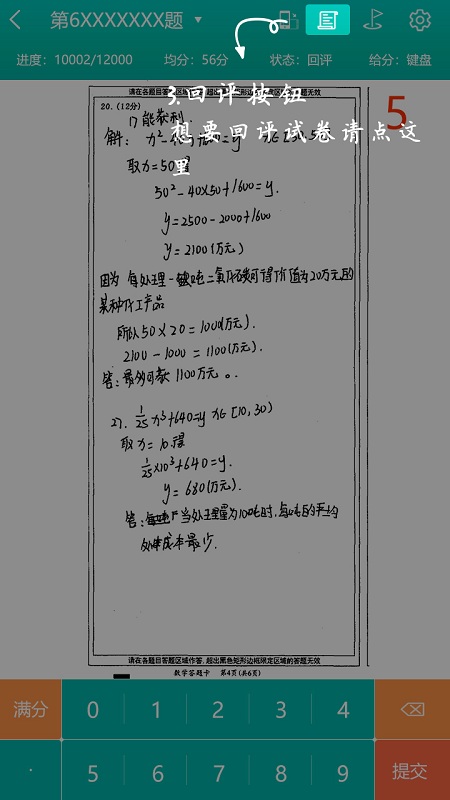 第6XXXXXXX题
进度：10002/12000 均分：56分 状态：回评 给分：键盘
请在各题目答题区域作答，超出黑色矩形边框限定区域的答题无效
3.回评按钮
想要回评试卷请点这里
5
20.（12分）
1) 能获利.
解：
取x=50得
50²-40×50+1600=y.
y=2500-2000+1600
y=2100(万元)
因为 每处理一吨二氧化碳可得价值为20万元的
某种化工产品
所以 50×20=1000(万元).
2100-1000=1100(万元).
答：最多可获1100万元。
27. 1/25 x³+640=y x∈[10,30)
取x=10.得
1/25×10³+640=y.
y=680(万元).
答：当处理量为10吨时，每吨的平均
处理成本最少.
请在各题目答题区域作答，超出黑色矩形边框限定区域的答题无效
数学答题卡 第4页(共6页)
满分 0 1 2 3 4
. 5 6 7 8 9 提交